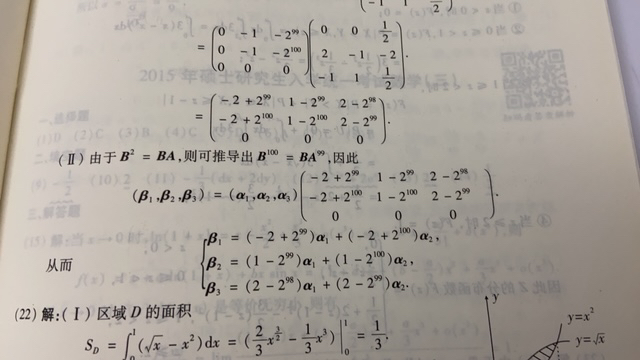 -1 1 1/2
= (0 -1 -2^99; 0 -1 -2^100; 0 0 0)(0 0 1/2; 2 -1 -2; -1 1 1/2).
= (-2+2^99 1-2^99 2-2^98; -2+2^100 1-2^100 2-2^99; 0 0 0).
(Ⅱ) 由于 B² = BA,则可推导出 B^100 = BA^99,因此
(β₁,β₂,β₃) = (α₁,α₂,α₃)(-2+2^99 1-2^99 2-2^98; -2+2^100 1-2^100 2-2^99; 0 0 0).
从而 {β₁ = (-2+2^99)α₁ + (-2+2^100)α₂,
β₂ = (1-2^99)α₁ + (1-2^100)α₂,
β₃ = (2-2^98)α₁ + (2-2^99)α₂.
(22) 解:(Ⅰ) 区域 D 的面积
S_D = ∫₀¹(√x - x²)dx = (2/3 x^(3/2) - 1/3 x³)|₀¹ = 1/3.
y
y=x²
y=√x